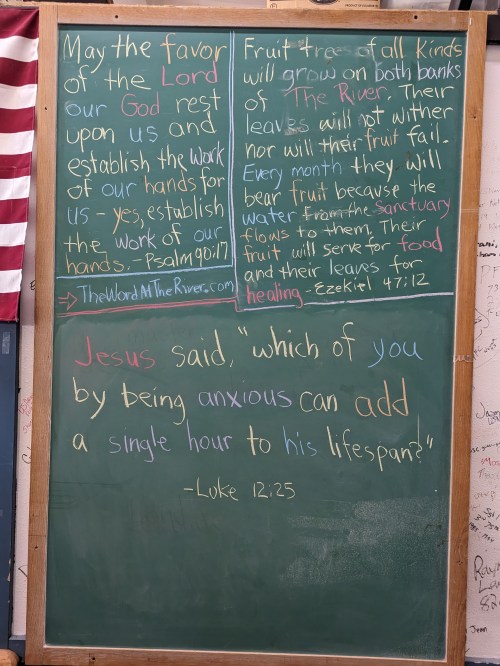 May the favor
of the Lord
our God rest
upon us and
establish the work
of our hands for
us - yes, establish
the work of our
hands. -Psalm 90:17
→ TheWordAtTheRiver.com
Fruit trees of all kinds
will grow on both banks
of The River. Their
leaves will not wither
nor will their fruit fail.
Every month they will
bear fruit because the
water from the sanctuary
flows to them. Their
fruit will serve for food
and their leaves for
healing - Ezekiel 47:12
Jesus said, "which of you
by being anxious can add
a single hour to his lifespan?"
-Luke 12:25
Jenn